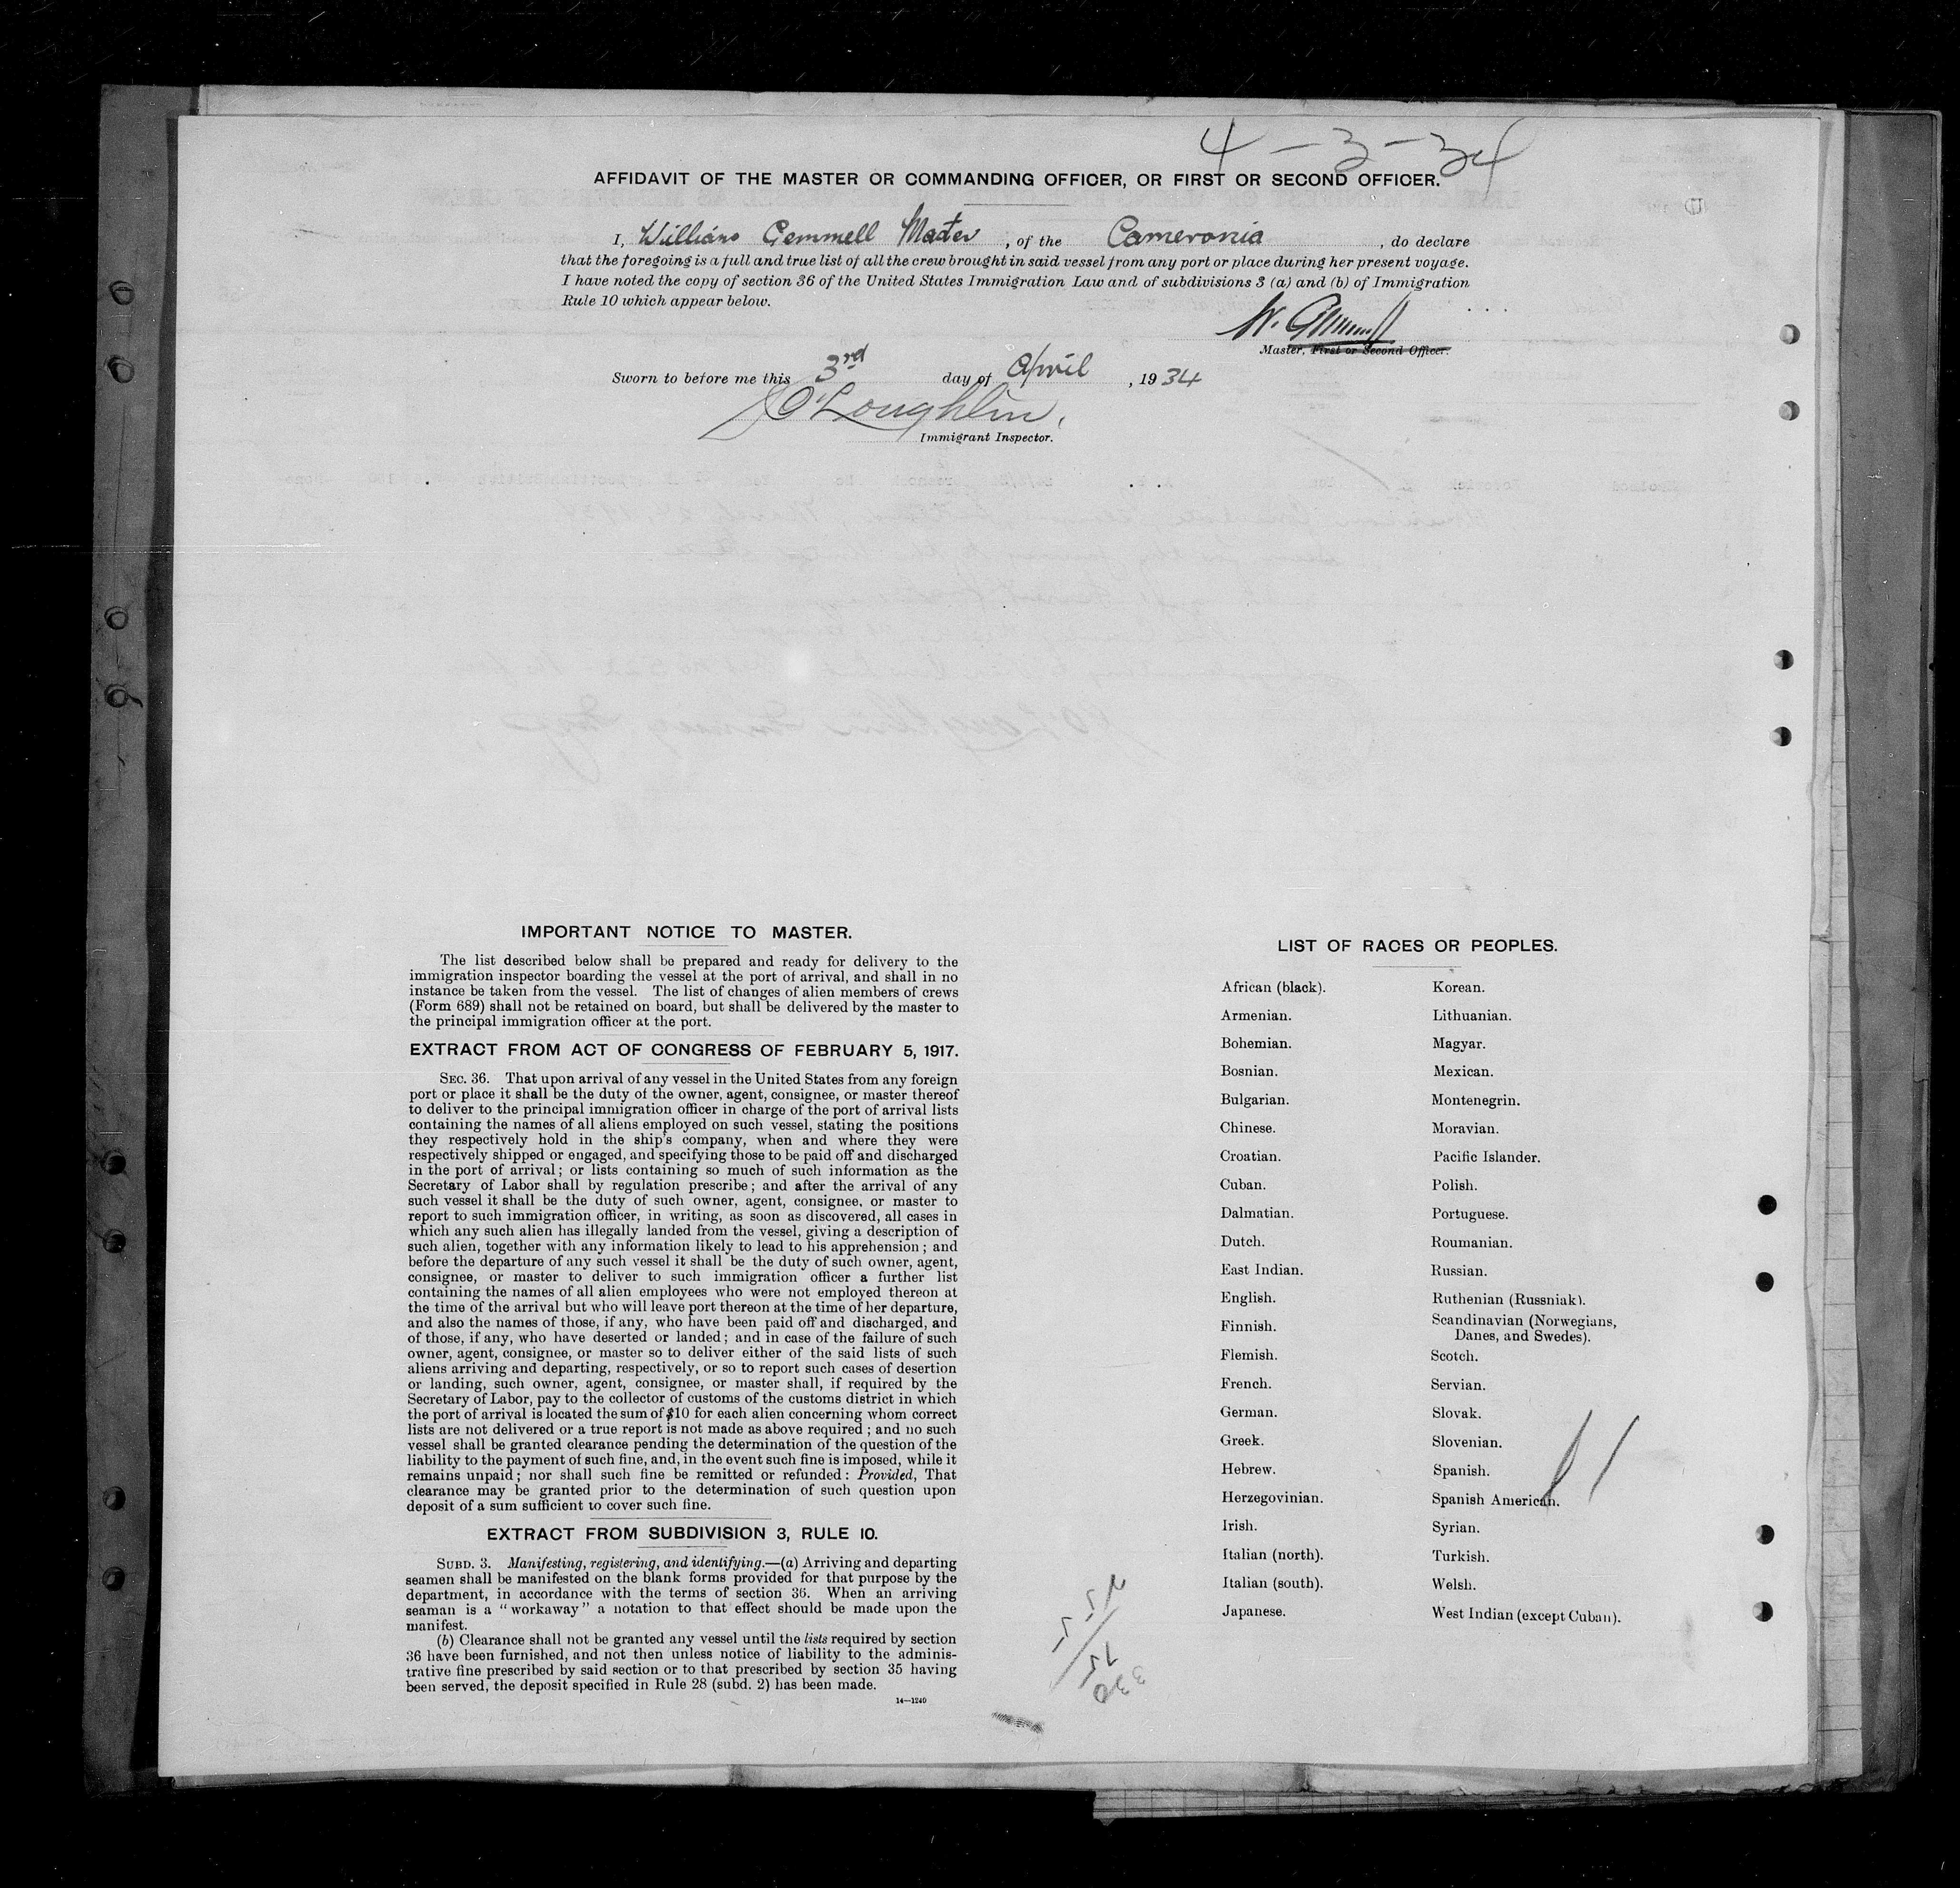 4-3-34
AFFIDAVIT OF THE MASTER OR COMMANDING OFFICER, OR FIRST OR SECOND OFFICER.
I, William Gemmell Master, of the Cameronia, do declare
that the foregoing is a full and true list of all the crew brought in said vessel from any port or place during her present voyage.
I have noted the copy of section 36 of the United States Immigration Law and of subdivisions 3 (a) and (b) of Immigration
Rule 10 which appear below.
W. Gemmell
Master, First or Second Officer.
Sworn to before me this 3rd day of April, 1934
O'Loughlin,
Immigrant Inspector.
IMPORTANT NOTICE TO MASTER.
The list described below shall be prepared and ready for delivery to the
immigration inspector boarding the vessel at the port of arrival, and shall in no
instance be taken from the vessel. The list of changes of alien members of crews
(Form 689) shall not be retained on board, but shall be delivered by the master to
the principal immigration officer at the port.
EXTRACT FROM ACT OF CONGRESS OF FEBRUARY 5, 1917.
SEC. 36. That upon arrival of any vessel in the United States from any foreign
port or place it shall be the duty of the owner, agent, consignee, or master thereof
to deliver to the principal immigration officer in charge of the port of arrival lists
containing the names of all aliens employed on such vessel, stating the positions
they respectively hold in the ship's company, when and where they were
respectively shipped or engaged, and specifying those to be paid off and discharged
in the port of arrival; or lists containing so much of such information as the
Secretary of Labor shall by regulation prescribe; and after the arrival of any
such vessel it shall be the duty of such owner, agent, consignee, or master to
report to such immigration officer, in writing, as soon as discovered, all cases in
which any such alien has illegally landed from the vessel, giving a description of
such alien, together with any information likely to lead to his apprehension; and
before the departure of any such vessel it shall be the duty of such owner, agent,
consignee, or master to deliver to such immigration officer a further list
containing the names of all alien employees who were not employed thereon at
the time of the arrival but who will leave port thereon at the time of her departure,
and also the names of those, if any, who have been paid off and discharged, and
of those, if any, who have deserted or landed; and in case of the failure of such
owner, agent, consignee, or master so to deliver either of the said lists of such
aliens arriving and departing, respectively, or so to report such cases of desertion
or landing, such owner, agent, consignee, or master shall, if required by the
Secretary of Labor, pay to the collector of customs of the customs district in which
the port of arrival is located the sum of $10 for each alien concerning whom correct
lists are not delivered or a true report is not made as above required; and no such
vessel shall be granted clearance pending the determination of the question of the
liability to the payment of such fine, and, in the event such fine is imposed, while it
remains unpaid; nor shall such fine be remitted or refunded: Provided, That
clearance may be granted prior to the determination of such question upon
deposit of a sum sufficient to cover such fine.
EXTRACT FROM SUBDIVISION 3, RULE 10.
SUBD. 3. Manifesting, registering, and identifying.—(a) Arriving and departing
seamen shall be manifested on the blank forms provided for that purpose by the
department, in accordance with the terms of section 36. When an arriving
seaman is a "workaway" a notation to that effect should be made upon the
manifest.
(b) Clearance shall not be granted any vessel until the lists required by section
36 have been furnished, and not then unless notice of liability to the adminis-
trative fine prescribed by said section or to that prescribed by section 35 having
been served, the deposit specified in Rule 28 (subd. 2) has been made.
14—1240
LIST OF RACES OR PEOPLES.
African (black).
Armenian.
Bohemian.
Bosnian.
Bulgarian.
Chinese.
Croatian.
Cuban.
Dalmatian.
Dutch.
East Indian.
English.
Finnish.
Flemish.
French.
German.
Greek.
Hebrew.
Herzegovinian.
Irish.
Italian (north).
Italian (south).
Japanese.
Korean.
Lithuanian.
Magyar.
Mexican.
Montenegrin.
Moravian.
Pacific Islander.
Polish.
Portuguese.
Roumanian.
Russian.
Ruthenian (Russniak).
Scandinavian (Norwegians,
Danes, and Swedes).
Scotch.
Servian.
Slovak.
Slovenian.
Spanish.
Spanish American.
Syrian.
Turkish.
Welsh.
West Indian (except Cuban).